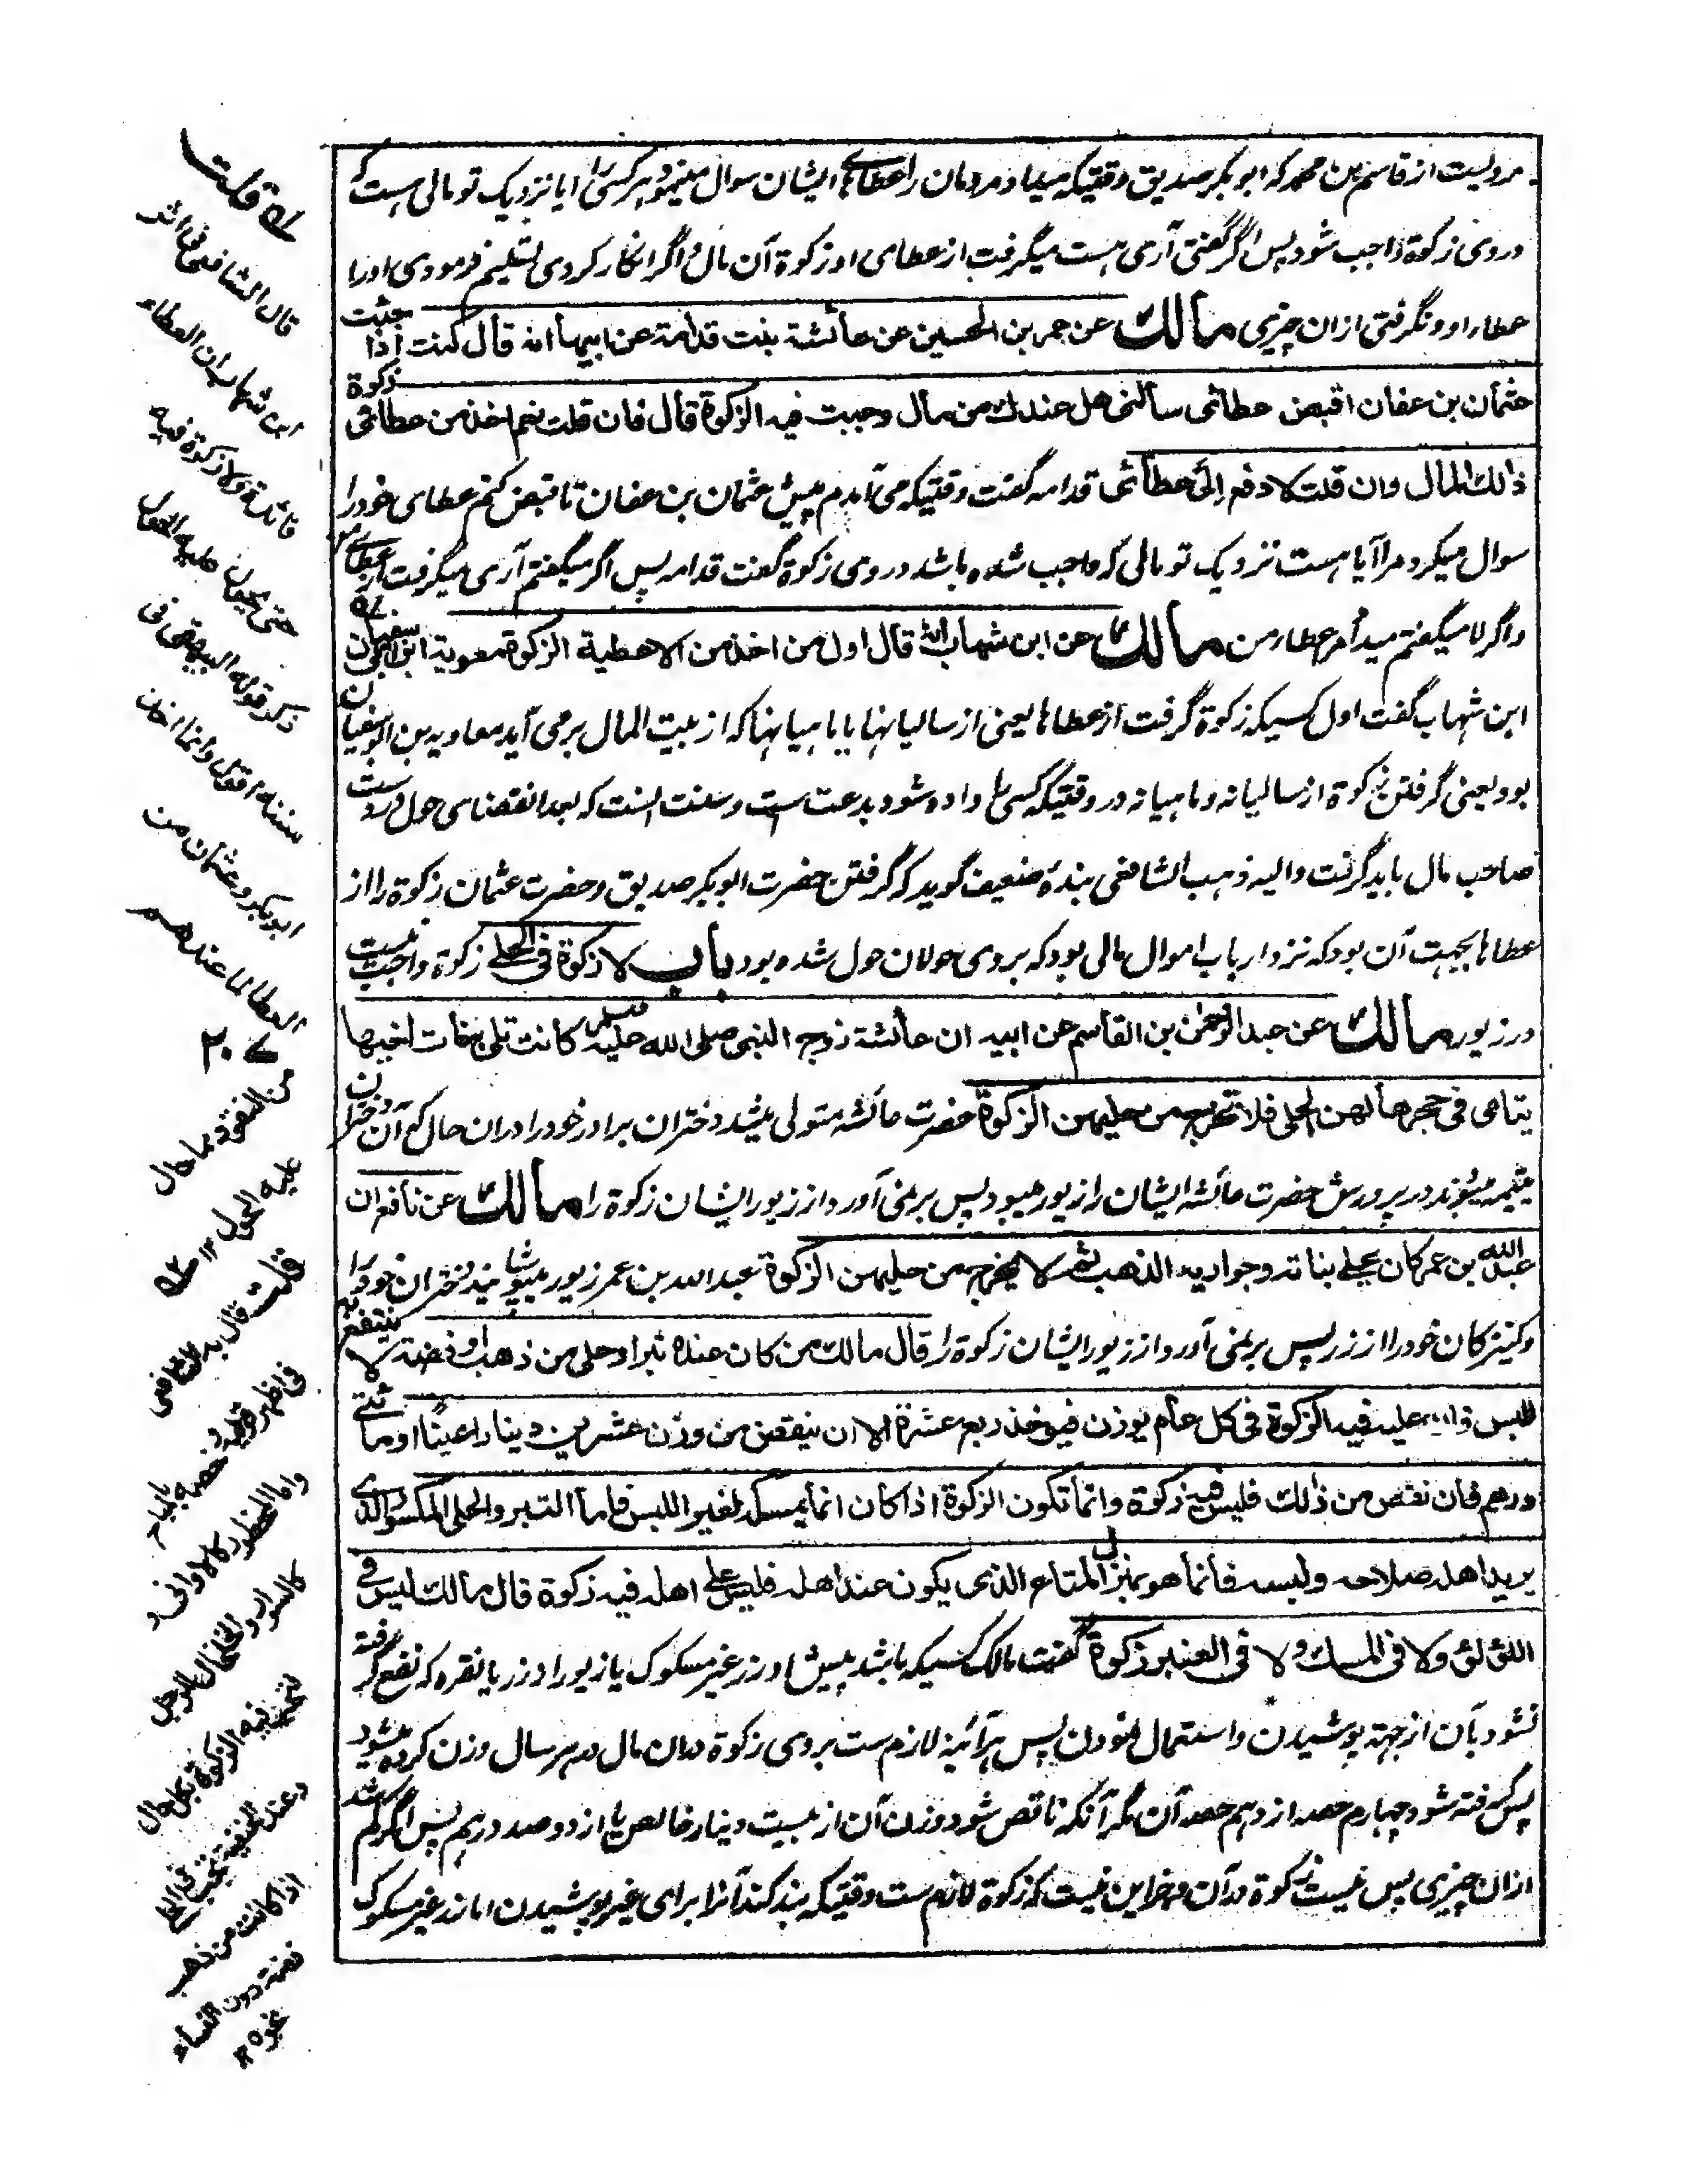 مرویست از قاسم بن محمد که ابوبکر صدیق وقتیکه میداد مردمان را عطاهای ایشان سوال مینمود هر کسی را ایا نزدیک تو مالی هست که
دروی زکوة واجب شود پس اگر گفتی آری هست میگرفت از عطای او زکوة آن مال و اگر انکار کردی تسلیم فرمودی اورا
عطاء او و نگرفتی ازان چیزی مالك عن عمر بن الحسین عن عائشة بنت قدامة عن ابیها انه قال کنت اذا جئت
عثمان بن عفان اقبض عطائی سألنی هل عندك من مال وجبت فیه الزکوة قال فان قلت نعم اخذ من عطائی زکوة
ذالك المال وان قلت لا دفع الیّ عطائی قدامه گفت وقتیکه می آمدم پیش عثمان بن عفان تا قبض کنم عطای خودرا
سوال میکرد مرا آیا هست نزدیک تو مالی که واجب شده باشد دروی زکوة گفت قدامه پس اگر میگفتم آری میگرفت از عطای من
واگر لا میگفتم میداد مرا عطاء من مالك عن ابن شهاب انه قال اول من اخذ من الاعطیة الزکوة معویة ابن ابی سفیان
ابن شهاب گفت اول کسیکه زکوة گرفت از عطاها یعنی از سالیانها یا ماهیانها که از بیت المال بر می آید معاویه بن ابو سفیان
بود یعنی گرفتن زکوة از سالیانه و ماهیانه در وقتیکه کسی را داده شود بدعت ست و سنت انست که بعد انقضای حول دردست
صاحب مال باید گرفت والیه ذهب الشافعی بندۀ ضعیف گوید که گرفتن حضرت ابوبکر صدیق و حضرت عثمان زکوة را از
عطاها بجهت آن بود که نزد ارباب اموال مالی بود که بروی حولان حول شده بود باب لا زکوة فی الحلی زکوة واجب نیست
در زیور مالك عن عبد الرحمن بن القاسم عن ابیه ان عائشة زوج النبی صلی الله علیه وسلم کانت تلی بنات اخیها
یتامی فی حجرها لهن الحلی فلا تخرج من حلیهن الزکوة حضرت عائشه متولی میشد دختران برادر خودرا دران حال که آن دختران
یتیمه میبودند در پرورش حضرت عائشه ایشان را زیور میبود پس بر نمی آورد از زیور ایشان زکوة را مالك عن نافع ان
عبد الله بن عمر کان یحلی بناته وجواریه الذهب ثم لا یخرج من حلیهن الزکوة عبد الله بن عمر زیور میپوشانید دختران خودرا
وکنیزکان خودرا از زر پس بر نمی آورد از زیور ایشان زکوة را قال مالك من کان عنده تبر او حلی من ذهب او فضة لا ینتفع به
للبس فان علیه فیه الزکوة فی کل عام یوزن فیوخذ ربع عشرة الا ان ینقص من وزن عشرین دینارا عینًا او مائتی
درهم فان نقص من ذلك فلیس فیه زکوة وانما تکون الزکوة اذا کان انما یمسکه لغیر اللبس فاما التبر والحلی المکسور الذی
یرید اهله صلاحه ولبسه فأنما هو بمنزل المتاع الذی یکون عند اهله فلیس علی اهله فیه زکوة قال مالك لیس فی
اللؤلؤ ولا فی المسك ولا فی العنبر زکوة گفت مالک کسیکه باشد پیش او زر غیر مسکوک یا زیور از زر یا نقره که نفع گرفته
نشود بآن از جهة پوشیدن و استعمال نمودن پس هرآئینه لازم ست بروی زکوة دران مال در هر سال وزن کرده میشود
پس گرفته شود چهارم حصه از دهم حصه آن مگر آنکه ناقص شود وزن آن از بیست دینار خالص یا از دو صد درهم پس اگر کم شد
ازان چیزی پس نیست زکوة در آن و جز این نیست که زکوة لازم ست وقتیکه بند کند آنرا برای غیر پوشیدن اما زر غیر مسکوک
قلت
قال الشافعی فی اثر
ابن شهاب ان العطاء
فائدة ولا زکوة فیه
حتی یحول علیه الحول
ذکر قوله البیهقی فی
سننه اقول وانما اخذ
ابوبکر وعثمان من
العطاء لما عندهم
من النقود بما حال
علیه الحول ۱۲
قلت قال به الشافعی
فی اظهر قولیه وخصه بالمباح
واما المحظور کالاوانی و
کالسوار والخلخال للرجل
تجب فیه الزکوة بکل حال
وعند الحنفیة تجب فی الحلی
اذا کانت من ذهب
فضة دون اللؤلؤ